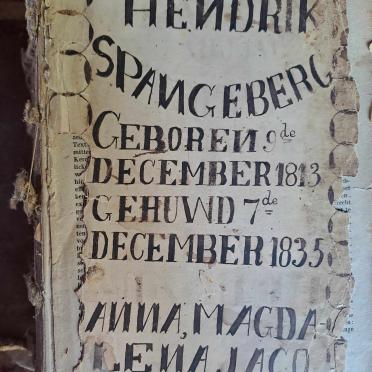 HENDRIK
SPANGEBERG
GEBOREN 9de
DECEMBER 1813
GEHUWD 7de
DECEMBER 1835
ANNA, MAGDA-
LENA, JACO